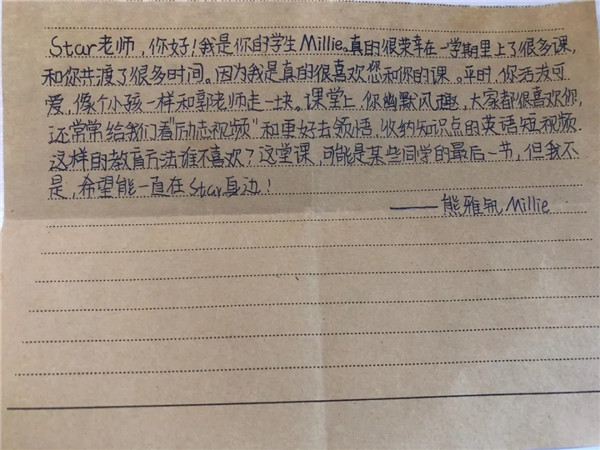 Star老师，你好！我是你的学生Millie。真的很荣幸在一学期里上了很多课，
和你共渡了很多时间。因为我是真的很喜欢您和你的课。平时，你活泼可
爱，像个小孩一样和郭老师走一块。课堂上，你幽默风趣，大家都很喜欢你，
还常常给我们看“励志视频”和更好去领悟、收纳知识点的英语短视频
这样的教育方法谁不喜欢？这堂课，可能是某些同学的最后一节，但我不
是，希望能一直在Star身边！
——熊雅 Millie